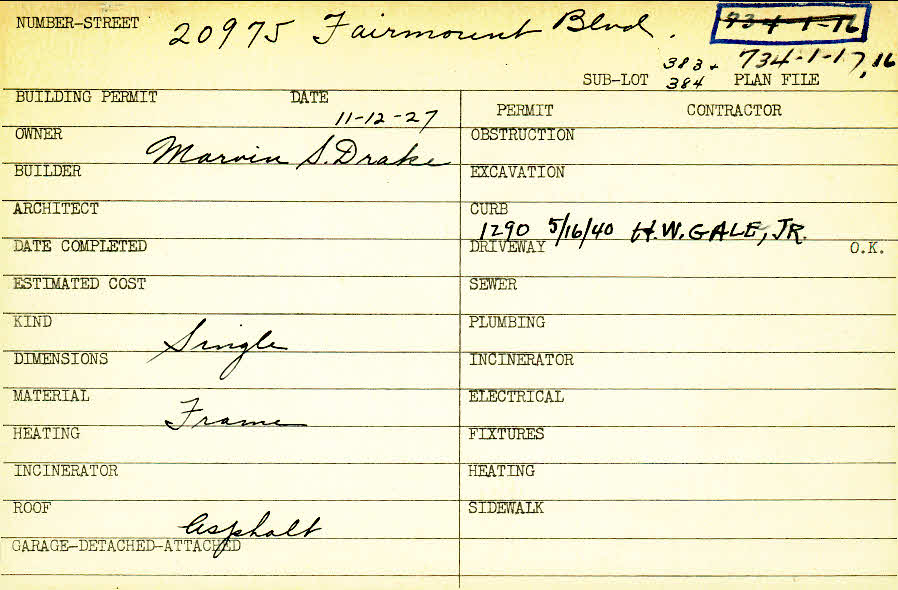 NUMBER-STREET 20975 Fairmount Blvd. 734-1-16
383 + 734-1-17,16
SUB-LOT 384 PLAN FILE
BUILDING PERMIT DATE
11-12-27
PERMIT CONTRACTOR
OWNER Marvin S. Drake
OBSTRUCTION
BUILDER
EXCAVATION
ARCHITECT
CURB
1290 5/16/40 H.W. GALE, JR.
DATE COMPLETED
DRIVEWAY O.K.
ESTIMATED COST
SEWER
KIND Single
PLUMBING
DIMENSIONS
INCINERATOR
MATERIAL Frame
ELECTRICAL
HEATING
FIXTURES
INCINERATOR
HEATING
ROOF Asphalt
SIDEWALK
GARAGE-DETACHED-ATTACHED